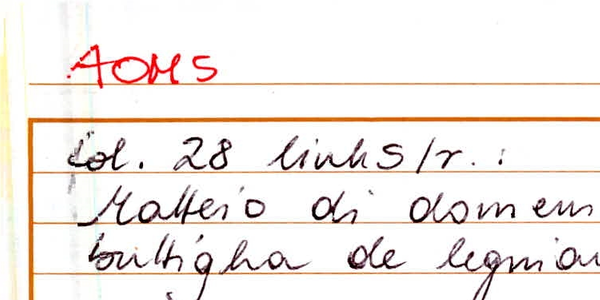 AOMS
fol. 28 links/r. :
Matteio di domen
bottigha de legnia